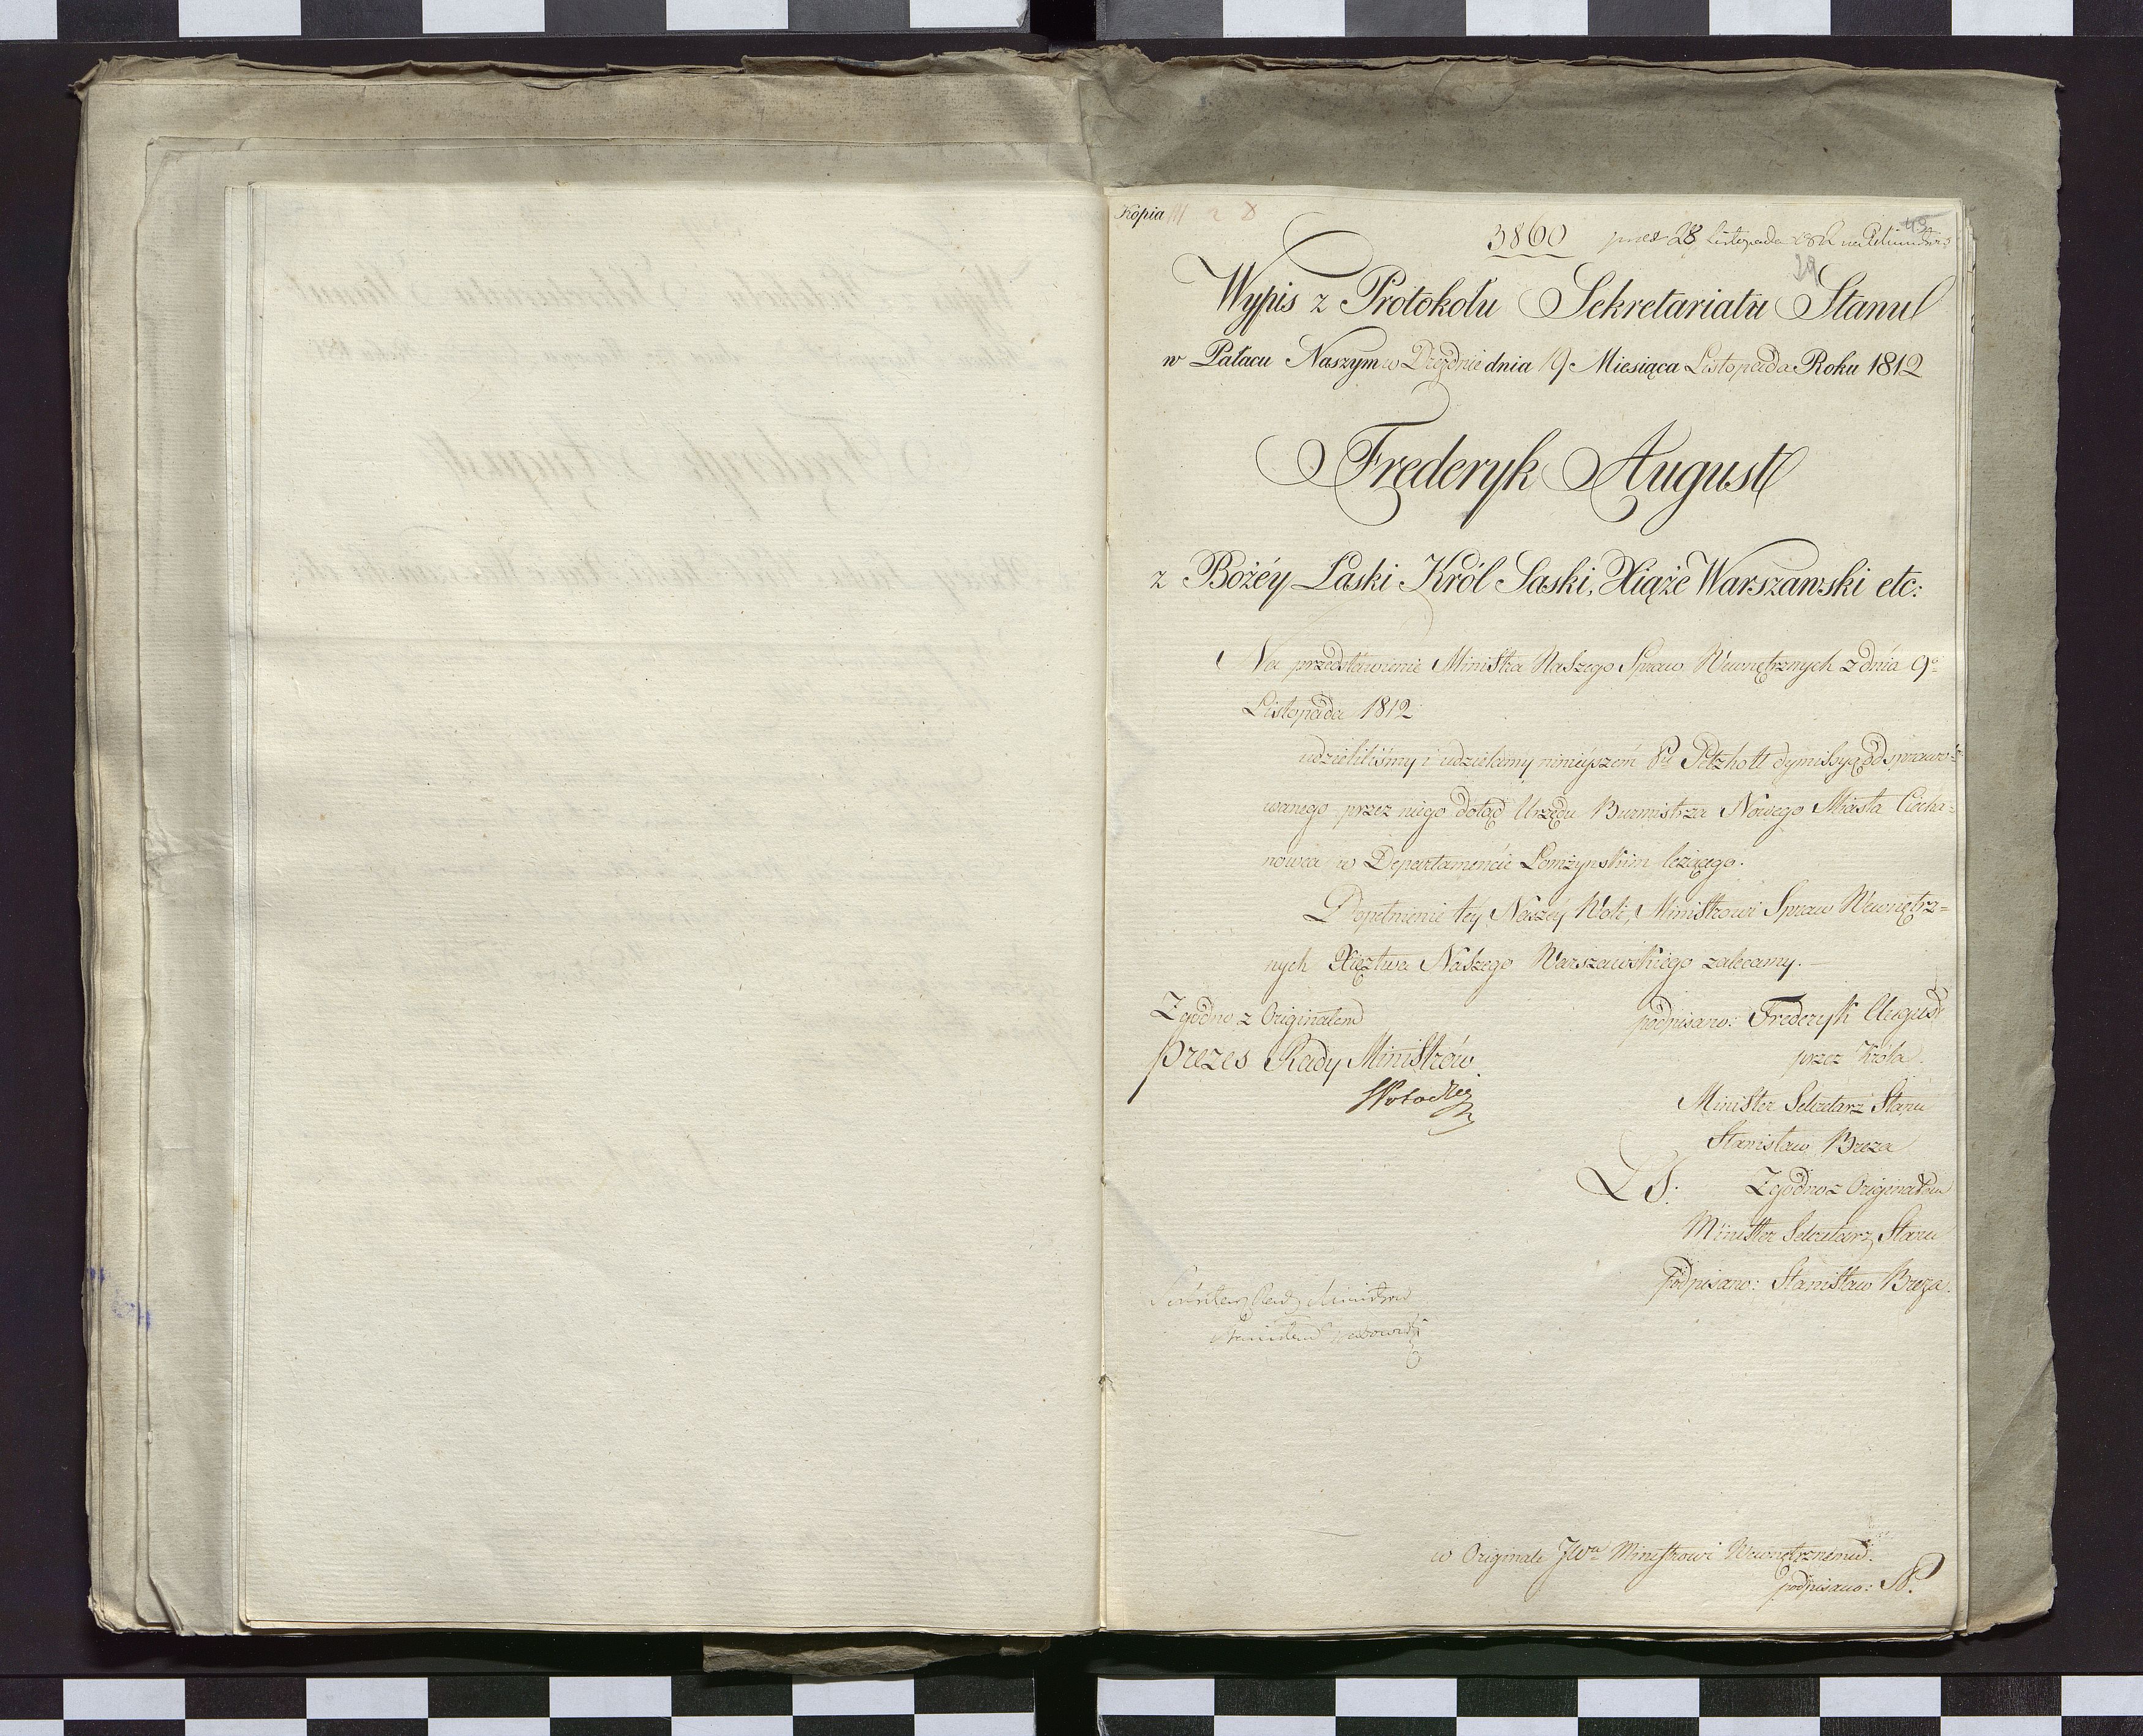 Kopia
3860 28 Listopada
43
39
Wypis z Protokołu Sekretariatu Stanu
w Pałacu Naszym w Dreznie dnia 19 Miesiąca Listopada Roku 1812
Frederyk August
z Bożéy Łaski Król Saski, Xiąże Warszawski etc:
Na przedstawienie Ministra Naszego Spraw Wewnętrznych z dnia 9º
Listopada 1812
udzieliliśmy i udzielamy nineyszém Petzholt dymissyą od sprawo=
wanego przez niego dotąd Urzędu Burmistrza Nowego Miasta Ciecha=
nowca w Departamencie Łomżynskim leżącego.
Dopełnienie téy Naszéy Woli, Ministrowi Spraw Wewnętrz=
nych Xięztwa Naszego Warszawskiego zalecamy.
Zgodno z Originałem
podpisano: Frederyk August
Prezes Rady Ministrów
przez Króla.
Minister Sekretarz Stanu
Stanisław Breza
LS. Zgodno z Originałem
Minister Sekretarz Stanu
podpisano: Stanisław Breza.
Sekretarz Rady Ministrów
w Originale JWu Ministrowi Wewnętrznemu.
podpisano: